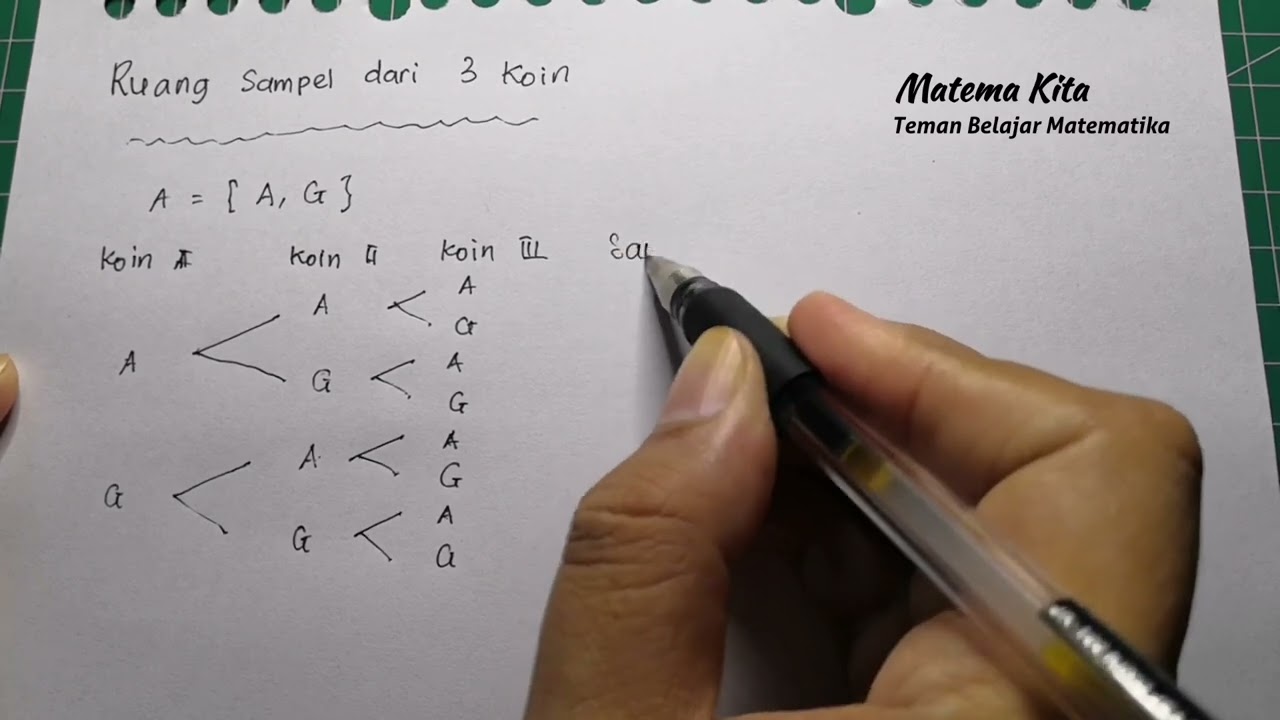 Ruang Sampel dari 3 Koin
Matema Kita
Teman Belajar Matematika
A = { A, G }
Koin I Koin II Koin III
A
A
G
A
G
A
G
A
A
G
G
G
A
G